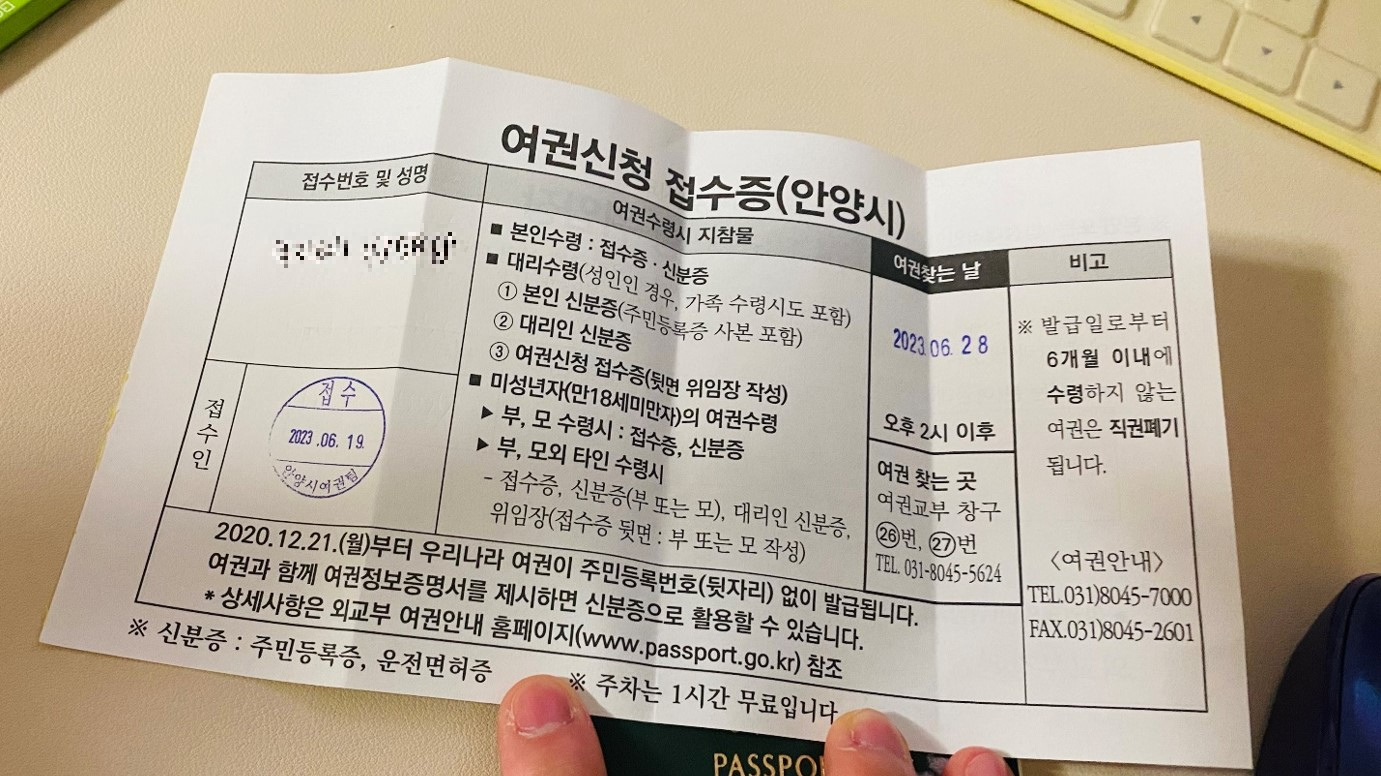 여권신청 접수증(안양시)
접수번호 및 성명
접수인
접수
2023.06.19.
안양시여권팀
여권수령시 지참물
■ 본인수령 : 접수증 · 신분증
■ 대리수령(성인인 경우, 가족 수령시도 포함)
① 본인 신분증(주민등록증 사본 포함)
② 대리인 신분증
③ 여권신청 접수증(뒷면 위임장 작성)
■ 미성년자(만18세미만자)의 여권수령
▶ 부, 모 수령시 : 접수증, 신분증
▶ 부, 모외 타인 수령시
- 접수증, 신분증(부 또는 모), 대리인 신분증,
위임장(접수증 뒷면 : 부 또는 모 작성)
여권찾는 날
2023.06.28
오후 2시 이후
여권 찾는 곳
여권교부 창구
㉖번, ㉗번
TEL. 031-8045-5624
비고
※ 발급일로부터
6개월 이내에
수령하지 않는
여권은 직권폐기
됩니다.
〈여권안내〉
TEL.031)8045-7000
FAX.031)8045-2601
2020.12.21.(월)부터 우리나라 여권이 주민등록번호(뒷자리) 없이 발급됩니다.
여권과 함께 여권정보증명서를 제시하면 신분증으로 활용할 수 있습니다.
* 상세사항은 외교부 여권안내 홈페이지(www.passport.go.kr) 참조
※ 신분증 : 주민등록증, 운전면허증
※ 주차는 1시간 무료입니다
PASSPO